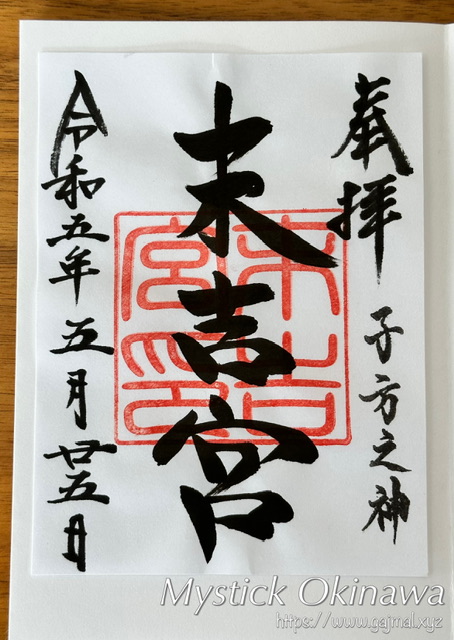 奉拝 子方之神
末吉宮
末吉宮印
令和五年五月廿五日
Mystick Okinawa
https://www.gajmal.xyz